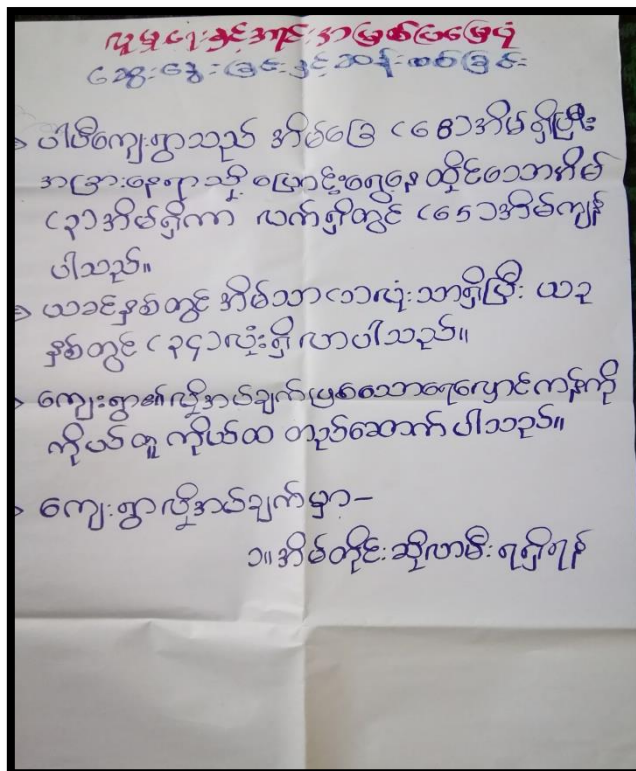 လူမှုရေးနှင့်အရင်းအမြစ်ပြမြေပုံ
ဆွေးနွေးခြင်းနှင့်ဆန်းစစ်ခြင်း
ပါပီကျေးရွာသည် အိမ်ခြေ (၆၈)အိမ်ရှိပြီး
အခြားနေရာသို့ ပြောင်းရွေ့နေထိုင်သောအိမ်
(၃)အိမ်ရှိကာ လက်ရှိတွင် (၆၅)အိမ်ကျန်
ပါသည်။
ယခင်နှစ်တွင် အိမ်သာ(၁)လုံးသာရှိပြီး ယခု
နှစ်တွင် (၃၄)လုံးရှိလာပါသည်။
ကျေးရွာ၏လိုအပ်ချက်ဖြစ်သောရေလှောင်ကန်ကို
ကိုယ်ထူကိုယ်ထ တည်ဆောက်ပါသည်။
ကျေးရွာလိုအပ်ချက်မှာ-
၁။အိမ်တိုင်းဆိုလာမီးရရှိရန်